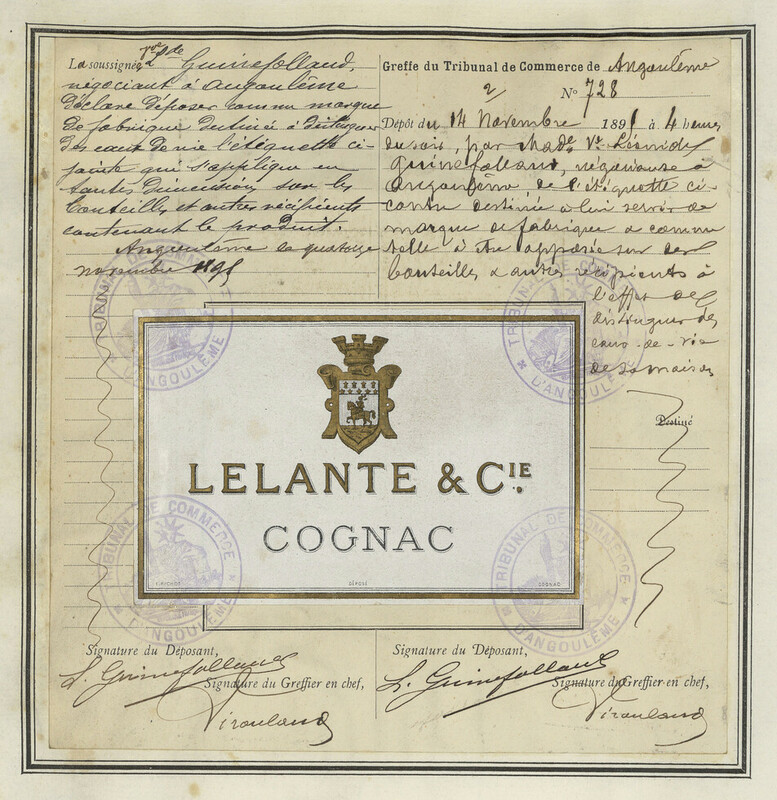 La soussignée Vve L. Guinefolleaud,
négociant à Angoulême
déclare déposer comme marque
de fabrique destinée à distinguer
des eaux de vie l'étiquette ci-
jointe qui s'applique en
toutes dimensions sur les
bouteilles et autres récipients
contenant le produit.
Angoulême le quatorze
novembre
Greffe du Tribunal de Commerce de Angoulême
No 728
Dépôt du 14 Novembre 1891 à 4 heures
du soir, par Made Ve Léonide
Guinefolleaud, négociante à
Angoulême, de l'étiquette ci-
contre destinée à lui servir de
marque de fabrique & comme
telle à être apposée sur des
bouteilles & autres récipients à
l'effet de
distinguer des
eaux-de-vie
de sa maison
Destiné
TRIBUNAL DE COMMERCE D'ANGOULÊME
TRIBUNAL DE COMMERCE D'ANGOULÊME
LELANTE & CIE.
COGNAC
DÉPOSÉ
COGNAC
TRIBUNAL DE COMMERCE D'ANGOULÊME
TRIBUNAL DE COMMERCE D'ANGOULÊME
Signature du Déposant,
L. Guinefolleaud
Signature du Greffier en chef,
Signature du Déposant,
L. Guinefolleaud
Signature du Greffier en chef,